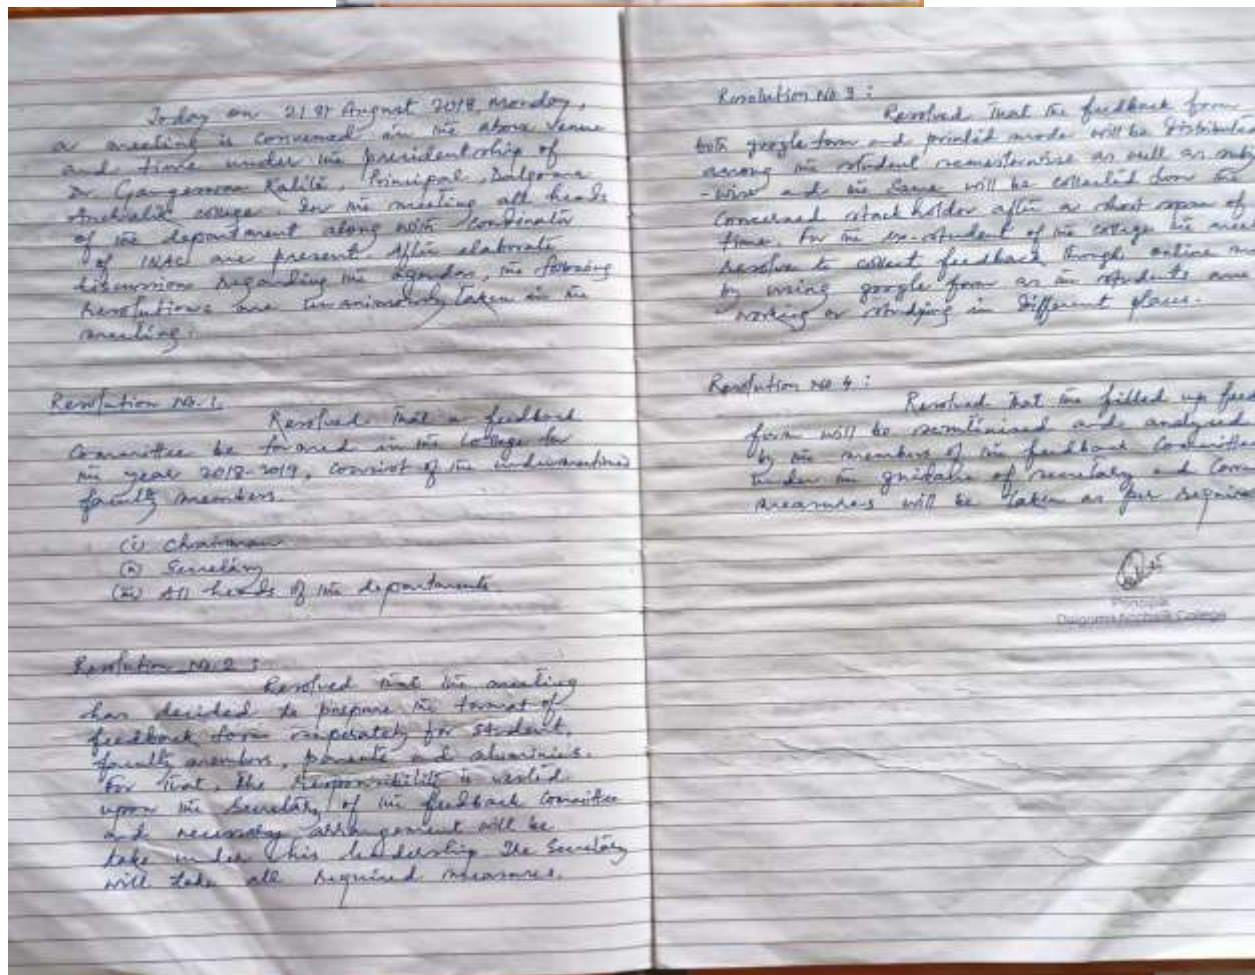 Today on 21st August 2018, Monday,
a meeting is convened in the above venue
and time under the presidentship of
Dr Kalita, Principal, Dalgoma
Anchalik college. In the meeting all heads
of the department along with coordinator
of are present. After elaborate
discussion regarding the agendas, the
Resolutions are unanimously taken in the
meeting.
Resolution No. 1.
Resolved that a feedback
Committee be formed in the College for
the year 2018-2019, consist of the
faculty members.
(i) Chairman
(ii) Secretary
(iii) All heads of the departments.
Resolution No. 2 :
Resolved that the meeting
has decided to prepare the format of
feedback form seperately for student,
faculty members, parents and
For that, the Responsibility is vested
upon the Secretary of the feedback Committee
and necessary arrangement will be
take under his leadership. The Secretary
will take all required measures.
Resolution No 3 :
Resolved that the feedback from
both google form and printed mode will be distribute
among the student semesterwise as well as sub
-wise and the same will be collected from the
concerned after a short span of
time. For the ex-student of the college the
resolve to collect feedback through online
by using google form as the students are
working or studying in different places.
Resolution No 4 :
Resolved that the filled up feed
form will be scrutinised and analyzed
by the members of the feedback Committee
under the guidance of secretary and
measures will be taken as per require
Principal
Dalgoma Anchalik College